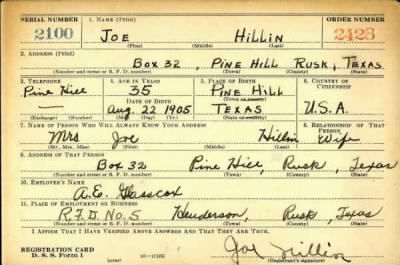 SERIAL NUMBER 1. NAME (Print) ORDER NUMBER
2100 JOE HILLIN 2428
(First) (Middle) (Last)
2. ADDRESS (Print)
BOX 32, PINE HILL RUSK, TEXAS
(Number and street or R. F. D. number) (Town) (County) (State)
3. TELEPHONE 4. AGE IN YEARS 5. PLACE OF BIRTH 6. COUNTRY OF CITIZENSHIP
Pine Hill 35 PINE HILL
DATE OF BIRTH (Town or county)
— Aug. 22 1905 TEXAS U.S.A.
(Exchange) (Number) (Mo.) (Day) (Yr.) (State or country)
7. NAME OF PERSON WHO WILL ALWAYS KNOW YOUR ADDRESS 8. RELATIONSHIP OF THAT PERSON
Mrs Joe Hillin Wife
(Mr., Mrs., Miss) (First) (Middle) (Last)
9. ADDRESS OF THAT PERSON
Box 32 Pine Hill, Rusk, Texas
(Number and street or R. F. D. number) (Town) (County) (State)
10. EMPLOYER'S NAME
A.E. Glasscox
11. PLACE OF EMPLOYMENT OR BUSINESS
R.F.D. No. 5 Henderson, Rusk, Texas
(Number and street or R. F. D. number) (Town) (County) (State)
I AFFIRM THAT I HAVE VERIFIED ABOVE ANSWERS AND THAT THEY ARE TRUE.
Joe Hillin
REGISTRATION CARD
D. S. S. Form 1 (over) (Registrant's signature)